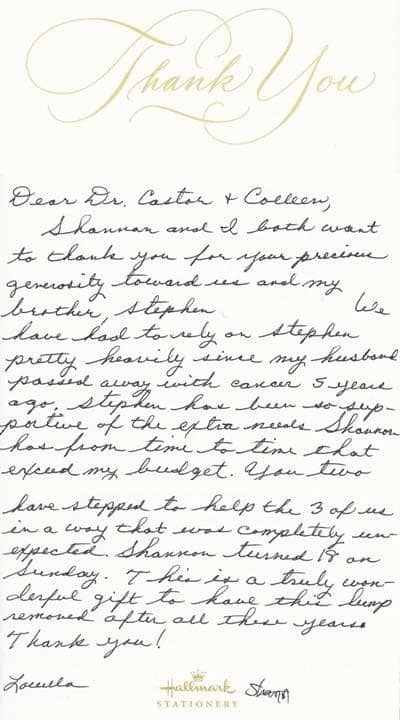 Thank You
Dear Dr. Castor + Colleen,
Shannan and I both want
to thank you for your precious
generosity toward us and my
brother, Stephen We
have had to rely on Stephen
pretty heavily since my husband
passed away with cancer 5 years
ago. Stephen has been so sup-
portive of the extra needs Shannon
has from time to time that
exceed my budget. You two
have stepped to help the 3 of us
in a way that was completely un-
expected. Shannon turned 18 on
Sunday. This is a truly won-
derful gift to have this lump
removed after all these years.
Thank you!
Louella
Hallmark
STATIONERY